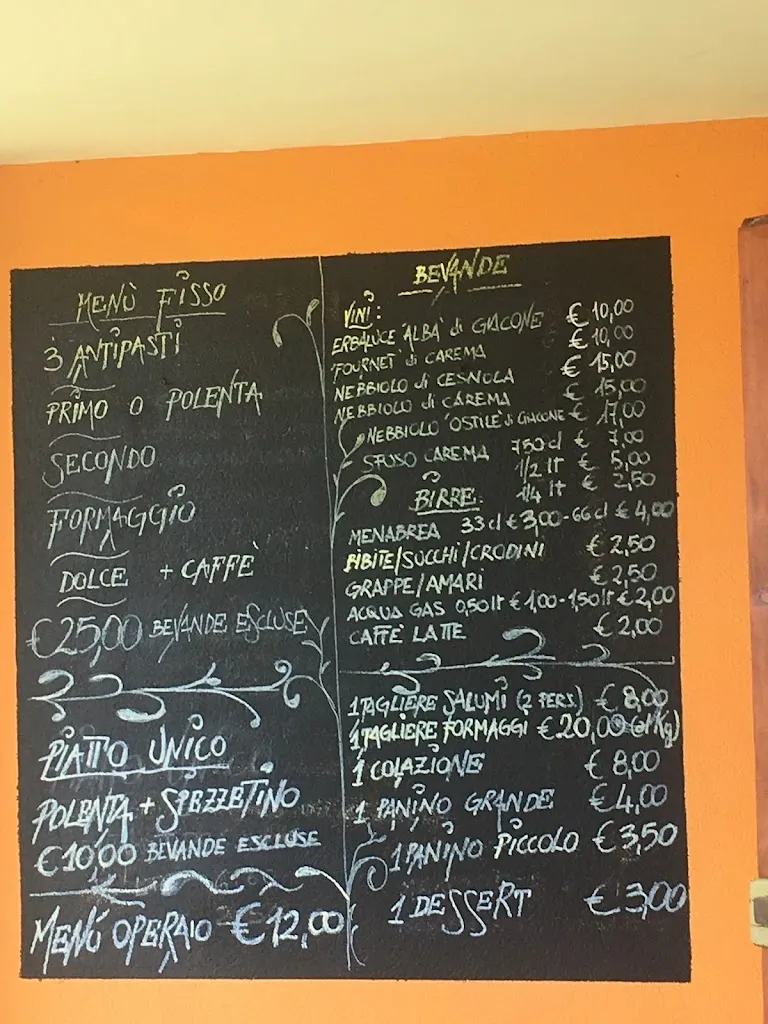 MENÙ FISSO
3 ANTIPASTI
PRIMO O POLENTA
SECONDO
FORMAGGIO
DOLCE + CAFFÈ
€25,00 BEVANDE ESCLUSE
PIATTO UNICO
POLENTA + SPEZZETINO
€10,00 BEVANDE ESCLUSE
MENÙ OPERAIO €12,00
BEVANDE
VINI:
ERBALUCE "ALBA" di GIACONE € 10,00
"FOURNET" di CAREMA € 10,00
NEBBIOLO di CESNOLA € 15,00
NEBBIOLO di CAREMA € 15,00
NEBBIOLO "OSTILE" di GIACONE € 17,00
SFUSO CAREMA 750 cl € 7,00
1/2 lt € 5,00
1/4 lt € 2,50
BIRRE:
MENABREA 33 cl € 3,00 - 66 cl € 4,00
BIBITE/SUCCHI/CRODINI € 2,50
GRAPPE/AMARI € 2,50
ACQUA GAS 0,50 lt € 1,00 - 1,50 lt € 2,00
CAFFÈ LATTE € 2,00
1 TAGLIERE SALUMI (2 PERS.) € 8,00
1 TAGLIERE FORMAGGI € 20,00 (al Kg)
1 COLAZIONE € 8,00
1 PANINO GRANDE € 4,00
1 PANINO PICCOLO € 3,50
1 DESSERT € 3,00